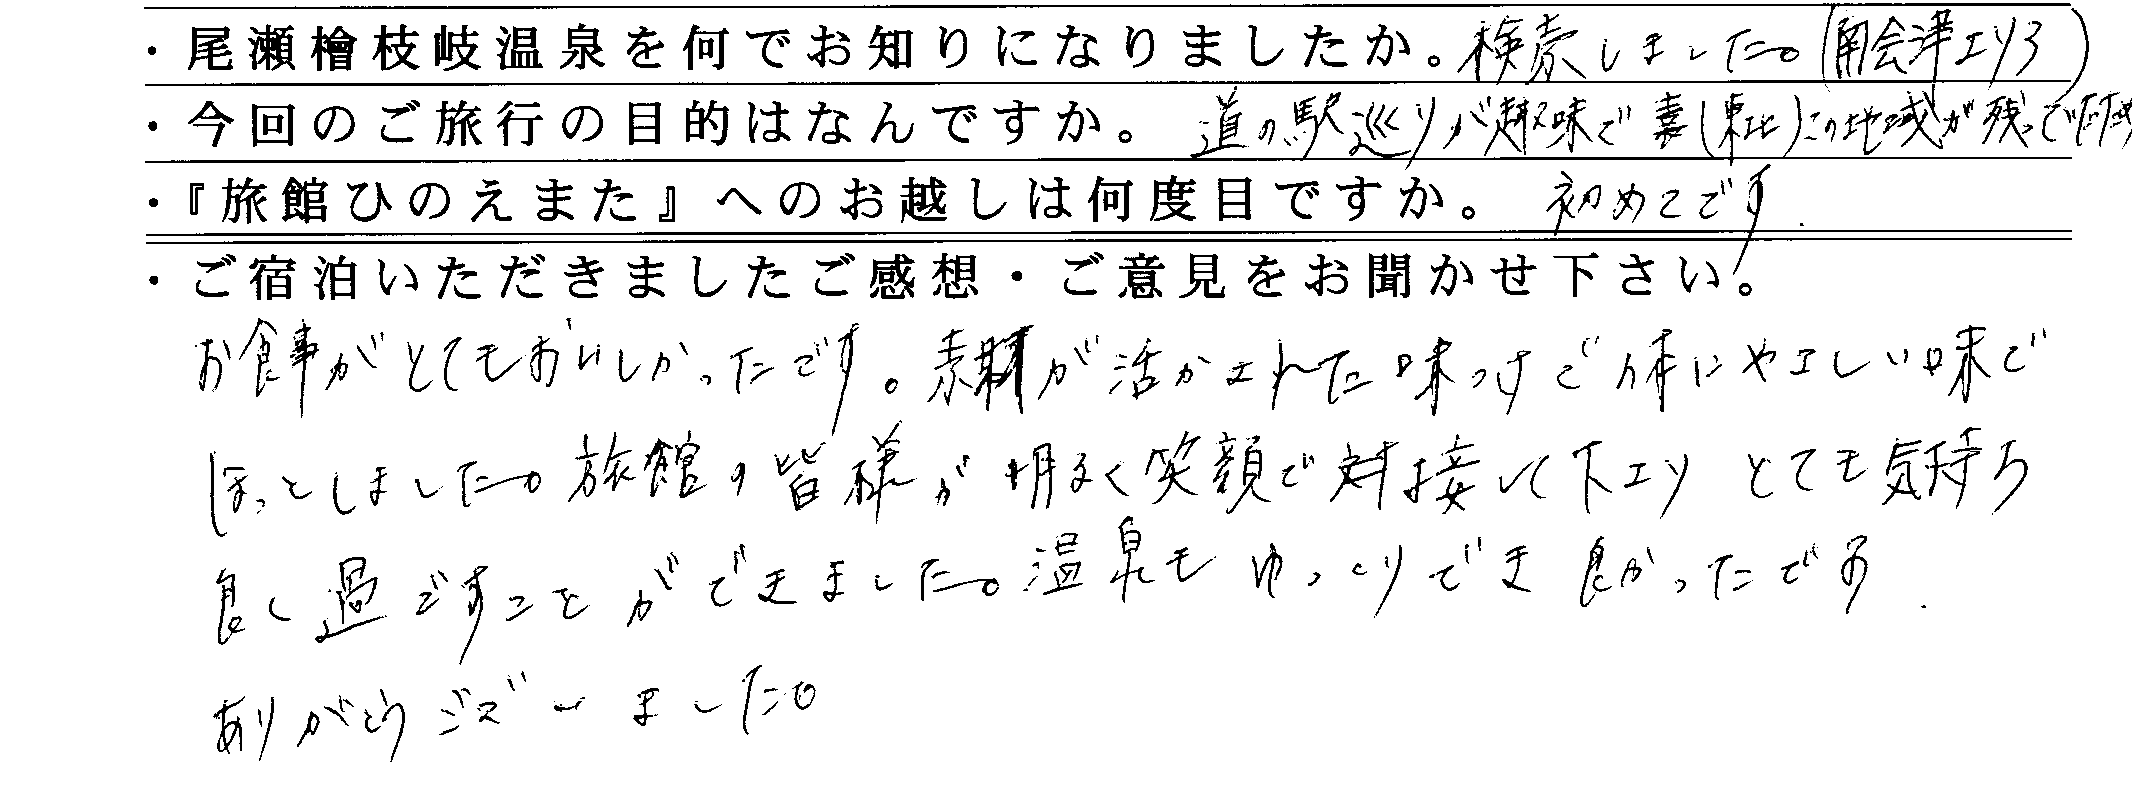 ・尾瀬檜枝岐温泉を何でお知りになりましたか。検索しました。(南会津エリア)
・今回のご旅行の目的はなんですか。道の駅巡りが趣味で(東北)この地域が残っていた
・『旅館ひのえまた』へのお越しは何度目ですか。初めてです.
・ご宿泊いただきましたご感想・ご意見をお聞かせ下さい。
お食事がとてもおいしかったです。素材が活かされた味つけで体にやさしい味で
ほっとしました。旅館の皆様が明るく笑顔で対接して下さり とても気持ち
良く過ごすことができました。温泉もゆっくりでき 良かったです.
ありがとうございました。